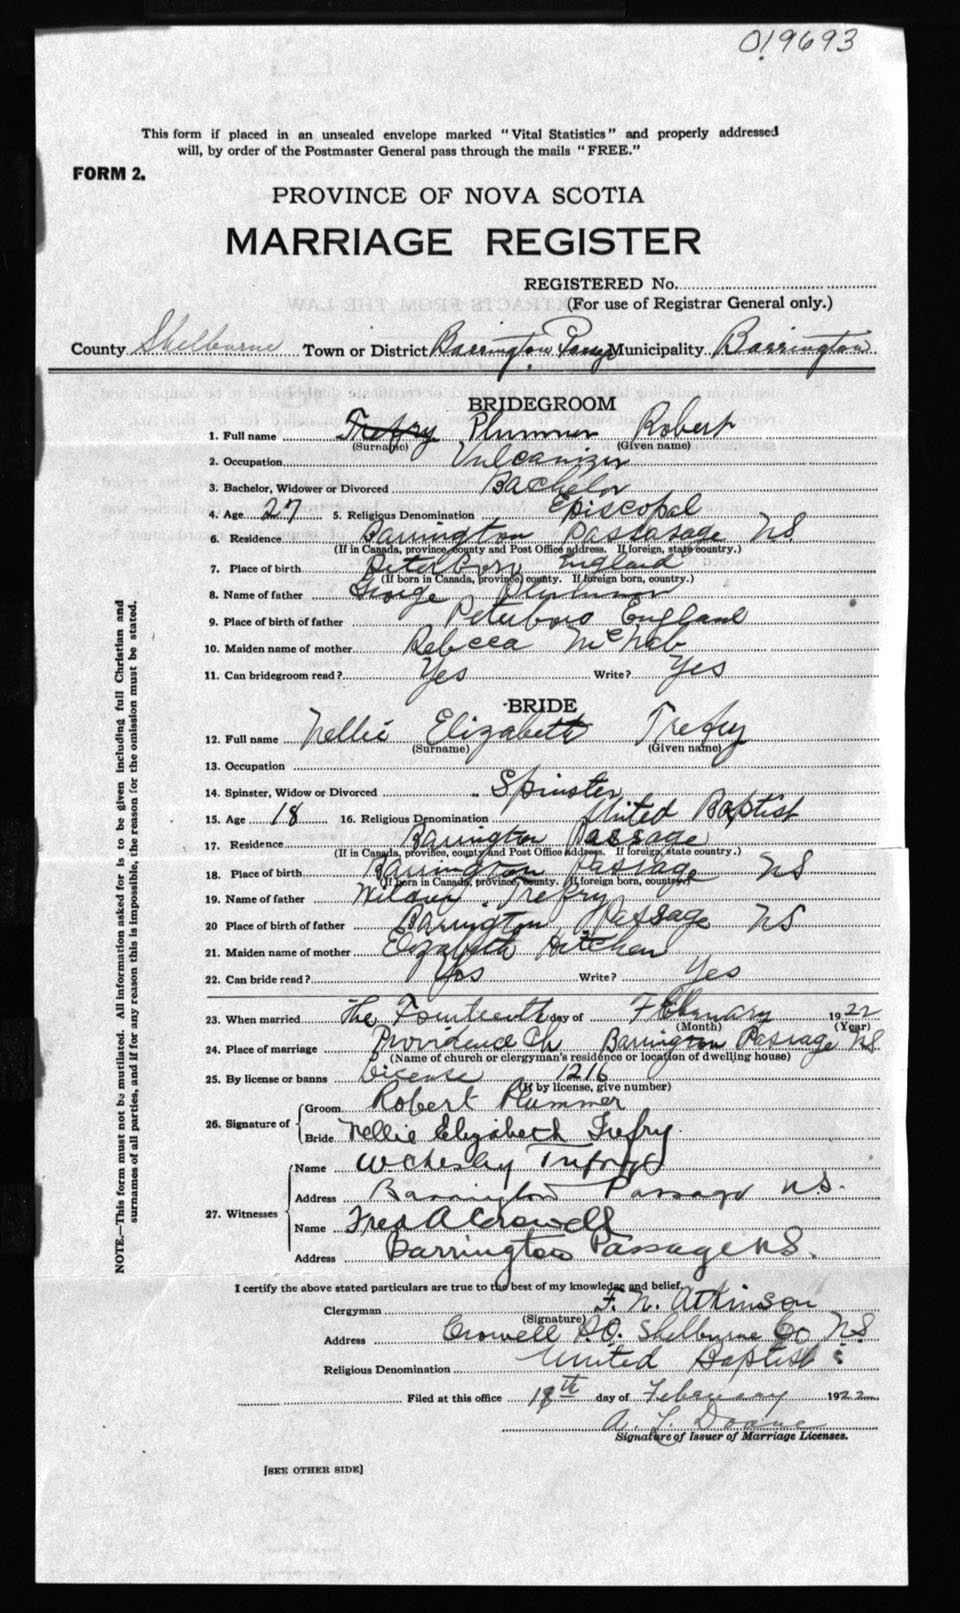 019693
This form if placed in an unsealed envelope marked "Vital Statistics" and properly addressed
will, by order of the Postmaster General pass through the mails "FREE."
FORM 2.
PROVINCE OF NOVA SCOTIA
MARRIAGE REGISTER
REGISTERED No.
(For use of Registrar General only.)
County Shelburne Town or District Barrington Passage Municipality Barrington
BRIDEGROOM
1. Full name Trefry Plummer Robert
(Surname) (Given name)
2. Occupation Vulcanizer
3. Bachelor, Widower or Divorced Bachelor
4. Age 27 5. Religious Denomination Episcopal
6. Residence Barrington Passasage NS
(If in Canada, province, county and Post Office address. If foreign, state country.)
7. Place of birth Peterboro England
(If born in Canada, province, county. If foreign born, country.)
8. Name of father George Plummer
9. Place of birth of father Peterboro England
10. Maiden name of mother Rebecca McNab
11. Can bridegroom read? Yes Write? Yes
BRIDE
12. Full name Nellie Elizabeth Trefry
(Surname) (Given name)
13. Occupation
14. Spinster, Widow or Divorced Spinster
15. Age 18 16. Religious Denomination United Baptist
17. Residence Barrington Passage
(If in Canada, province, county and Post Office Address. If foreign, state country.)
18. Place of birth Barrington Passage NS
(If born in Canada, province, county. If foreign born, country.)
19. Name of father Trefry
20 Place of birth of father Barrington Passage NS
21. Maiden name of mother Elizabeth Hitchen
22. Can bride read? Yes Write? Yes
23. When married The Fourteenth day of February 1922
(Month) (Year)
24. Place of marriage Providence Ch Barrington Passage NS
(Name of church or clergyman's residence or location of dwelling house)
25. By license or banns License 1216
(If by license, give number)
26. Signature of Groom Robert Plummer
Bride Nellie Elizabeth Trefry.
27. Witnesses Name W Chesley Trefry
Address Barrington Passage N.S.
Name Fred A Crowell
Address Barrington Passage N.S.
I certify the above stated particulars are true to the best of my knowledge and belief,
Clergyman F. N. Atkinson
(Signature)
Address Crowell P.O. Shelburne Co N.S
Religious Denomination United Baptist
Filed at this office 18th day of February 1922
A. L. Doane
Signature of Issuer of Marriage Licenses.
[SEE OTHER SIDE]
NOTE.—This form must not be mutilated. All information asked for is to be given including full Christian and
surnames of all parties, and if for any reason this is impossible, the reason for the omission must be stated.